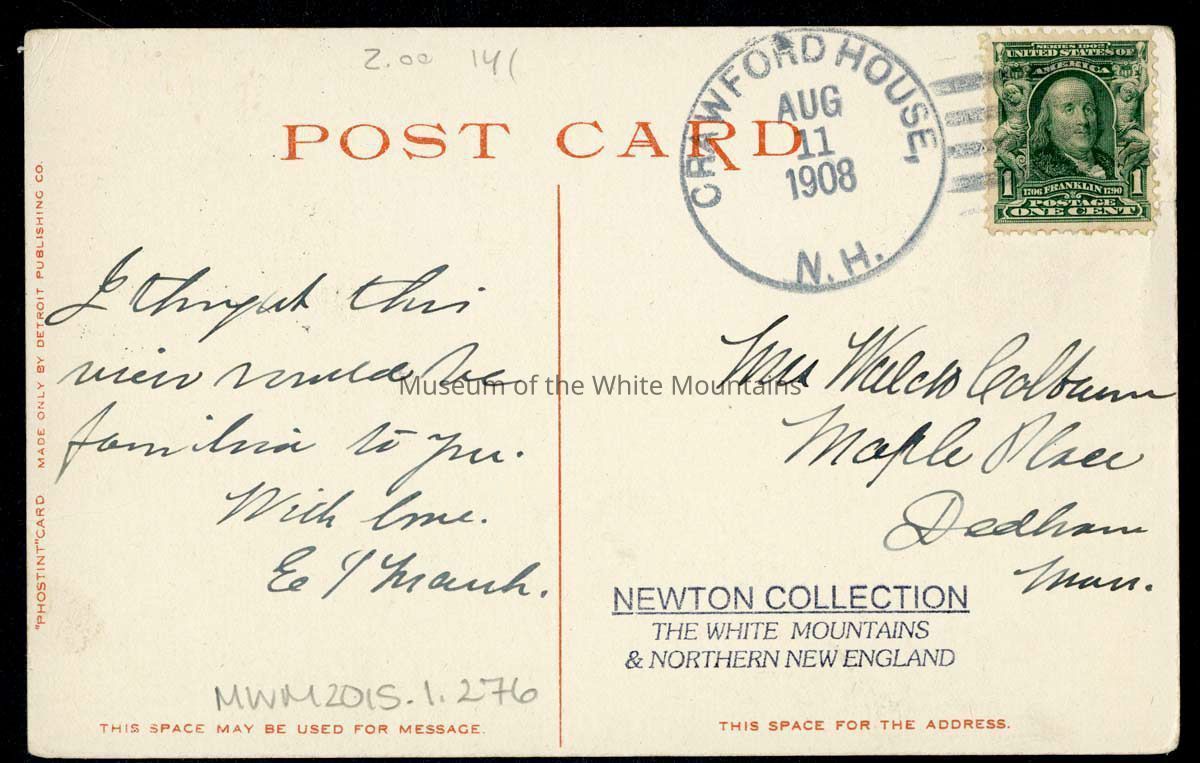 2.00 141
POST CARD
CRAWFORD HOUSE,
AUG
11
1908
N.H.
SERIES 1902
UNITED STATES OF
AMERICA
1 1
1706 FRANKLIN 1790
POSTAGE
ONE CENT
"PHOSTINT" CARD MADE ONLY BY DETROIT PUBLISHING CO.
I thought this
view would be
familiar to you.
With love.
E
Museum of the White Mountains
Mrs Colburn
Maple Place
Dedham
Mass.
NEWTON COLLECTION
THE WHITE MOUNTAINS
& NORTHERN NEW ENGLAND
MWM2015.1.276
THIS SPACE MAY BE USED FOR MESSAGE.
THIS SPACE FOR THE ADDRESS.